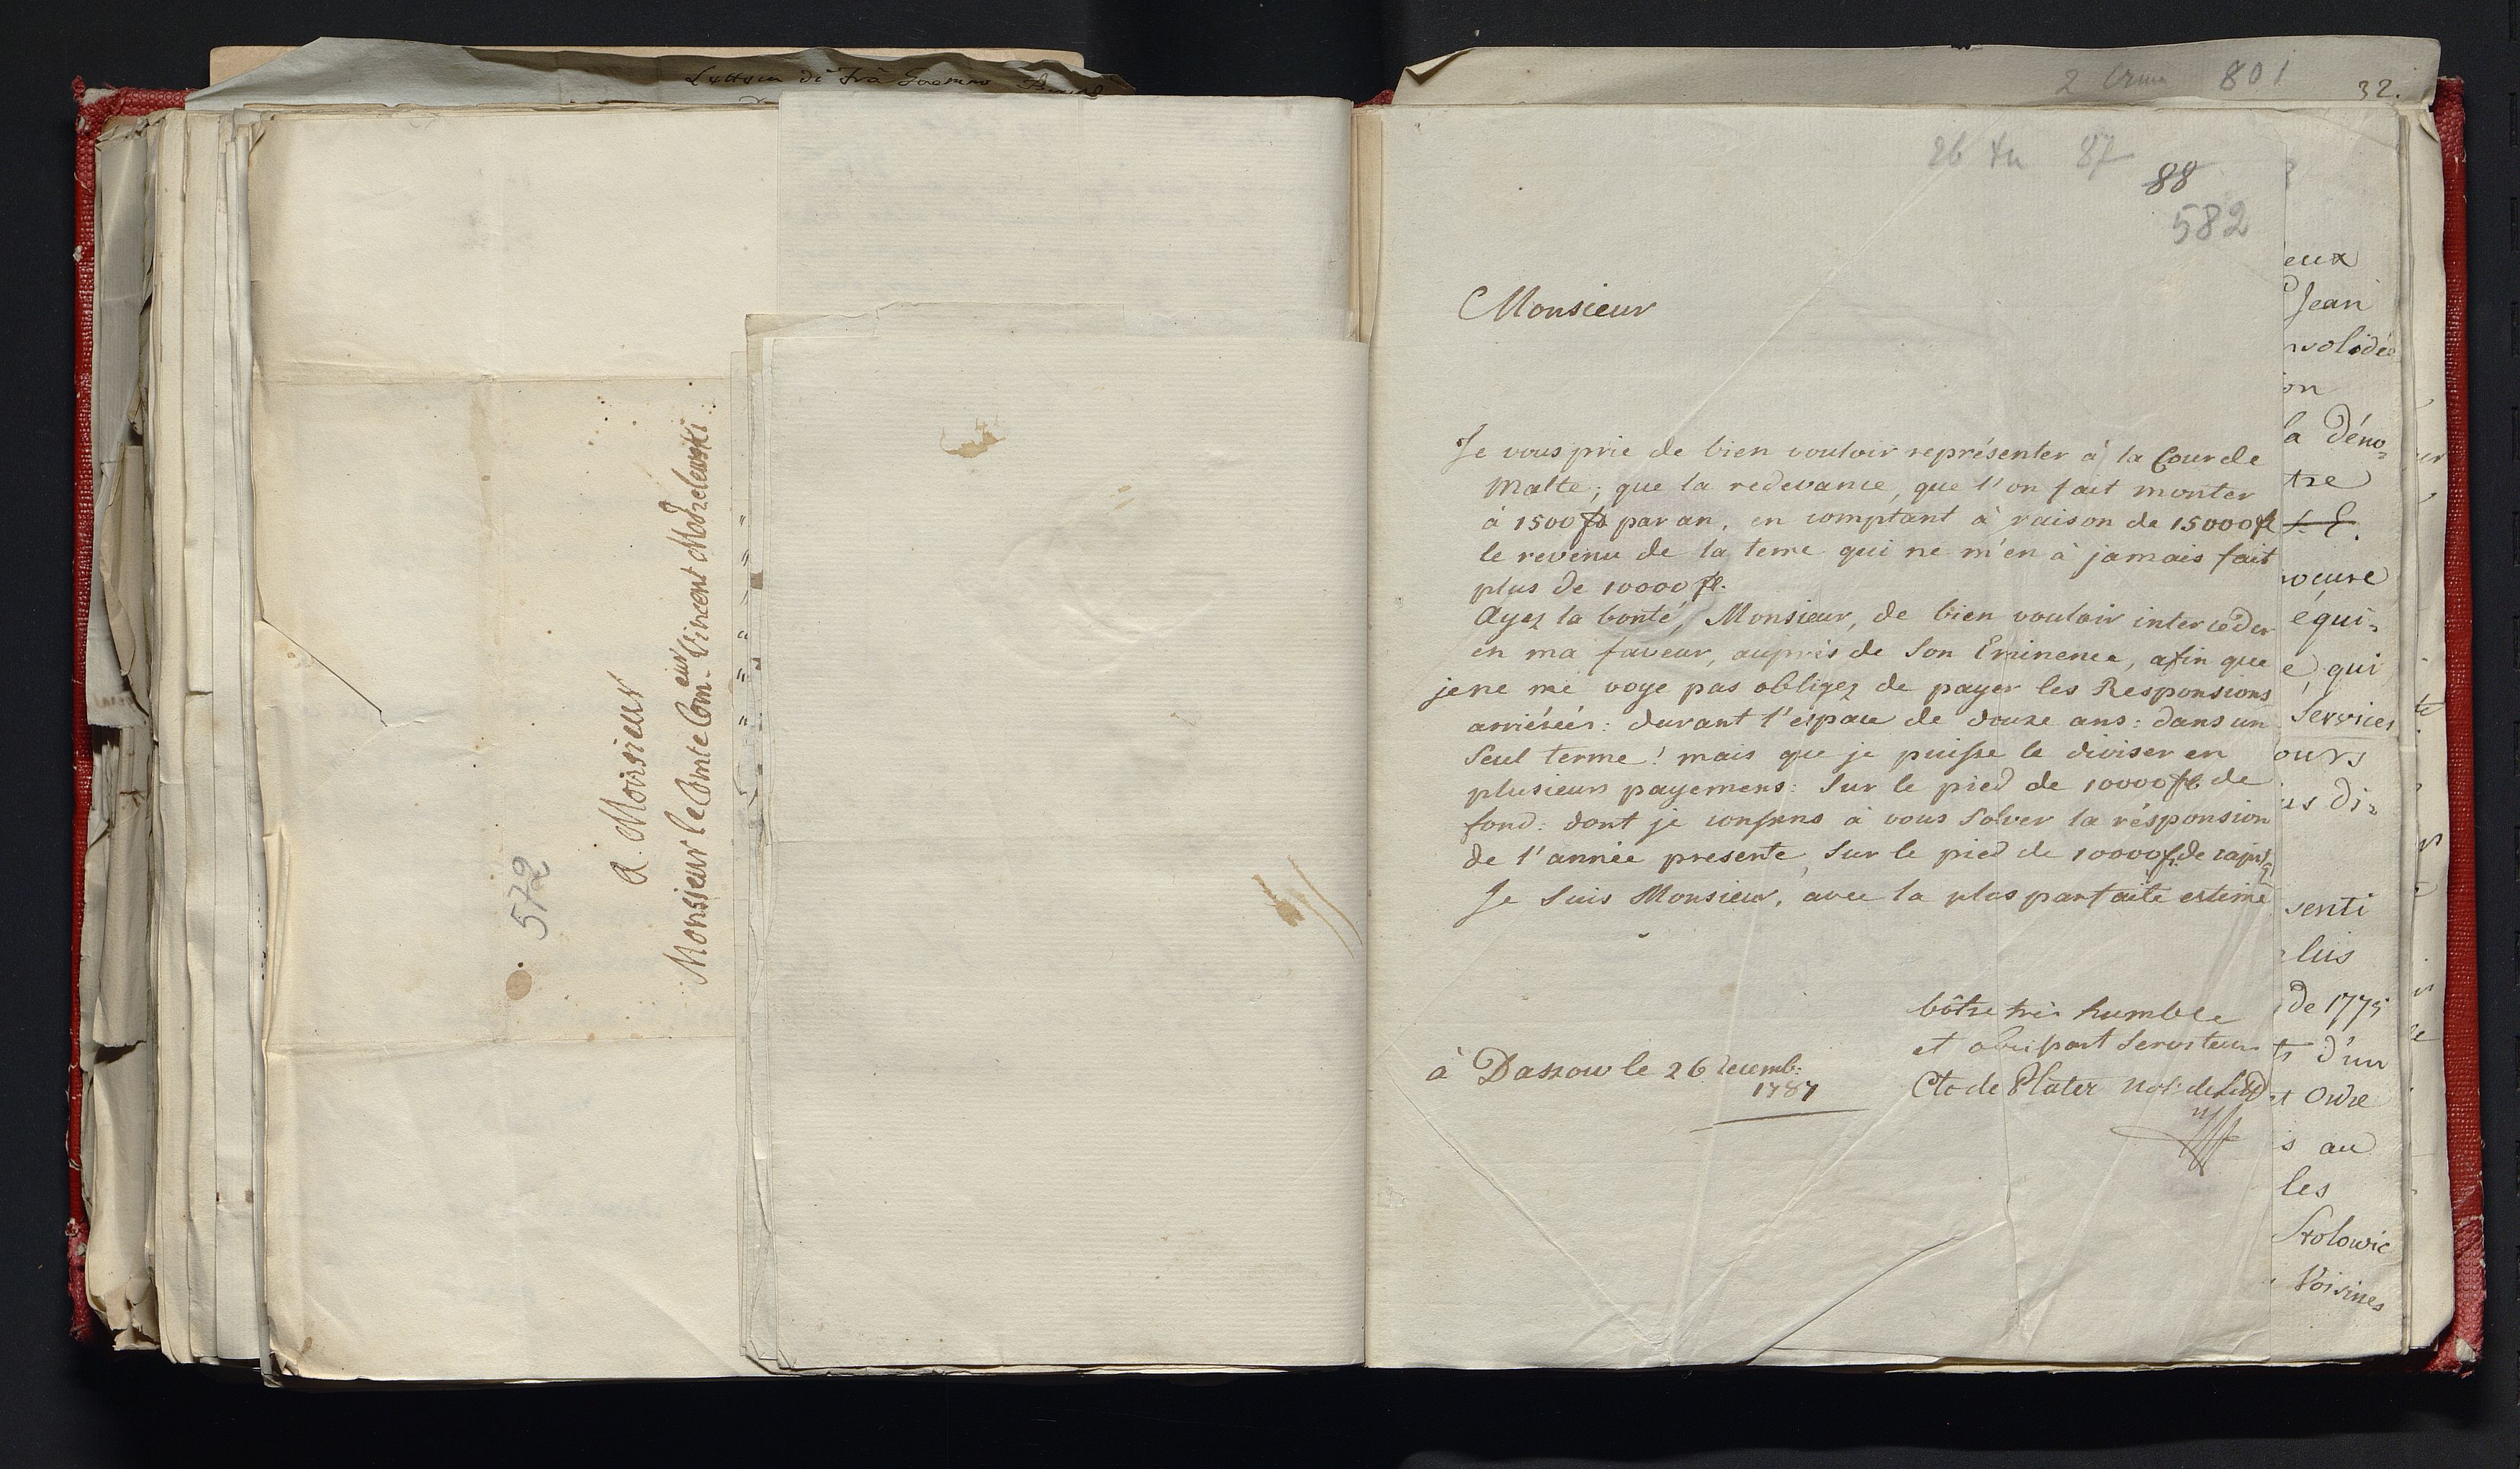 Lettera di Frà
572
A Monsieur
Monsieur le Comte Com.eur Vincent Modzelewski
2 801 32.
26 87
88
582
Monsieur
Je vous prie de bien vouloir représenter à la Cour de
Malte; que la redevance, que l'on fait monter
à 1500 fl par an, en comptant à raison de 15000 fl
le revenu de la terre qui ne m'en à jamais fait
plus de 10000 fl.
Ayez la bonté, Monsieur, de bien vouloir interceder
en ma faveur, auprès de Son Eminence, afin que
je ne me voye pas obligez de payer les Responsions
arriérées: durant l'espace de douze ans: dans un
Seul terme! mais que je puisse le diviser en
plusieurs payemens: Sur le pied de 10000 fl de
fond: dont je consens à vous Solver la résponsion
de l'année presente, Sur le pied de 10000 f. de
Je Suis Monsieur, avec la plus parfaite estime
vôtre très humble
et obeissant Serviteur
Cte de Plater Not: de
à Daszow le 26 Decemb:
1787
eux
Jean
nsolidée
on
la déno-
tre
S. E.
rocure
équi-
e, qui
Services
ours
us di-
senti
lus
de 1775
ts d'un
et Ordre
s au
les
Stolowic
Voisines